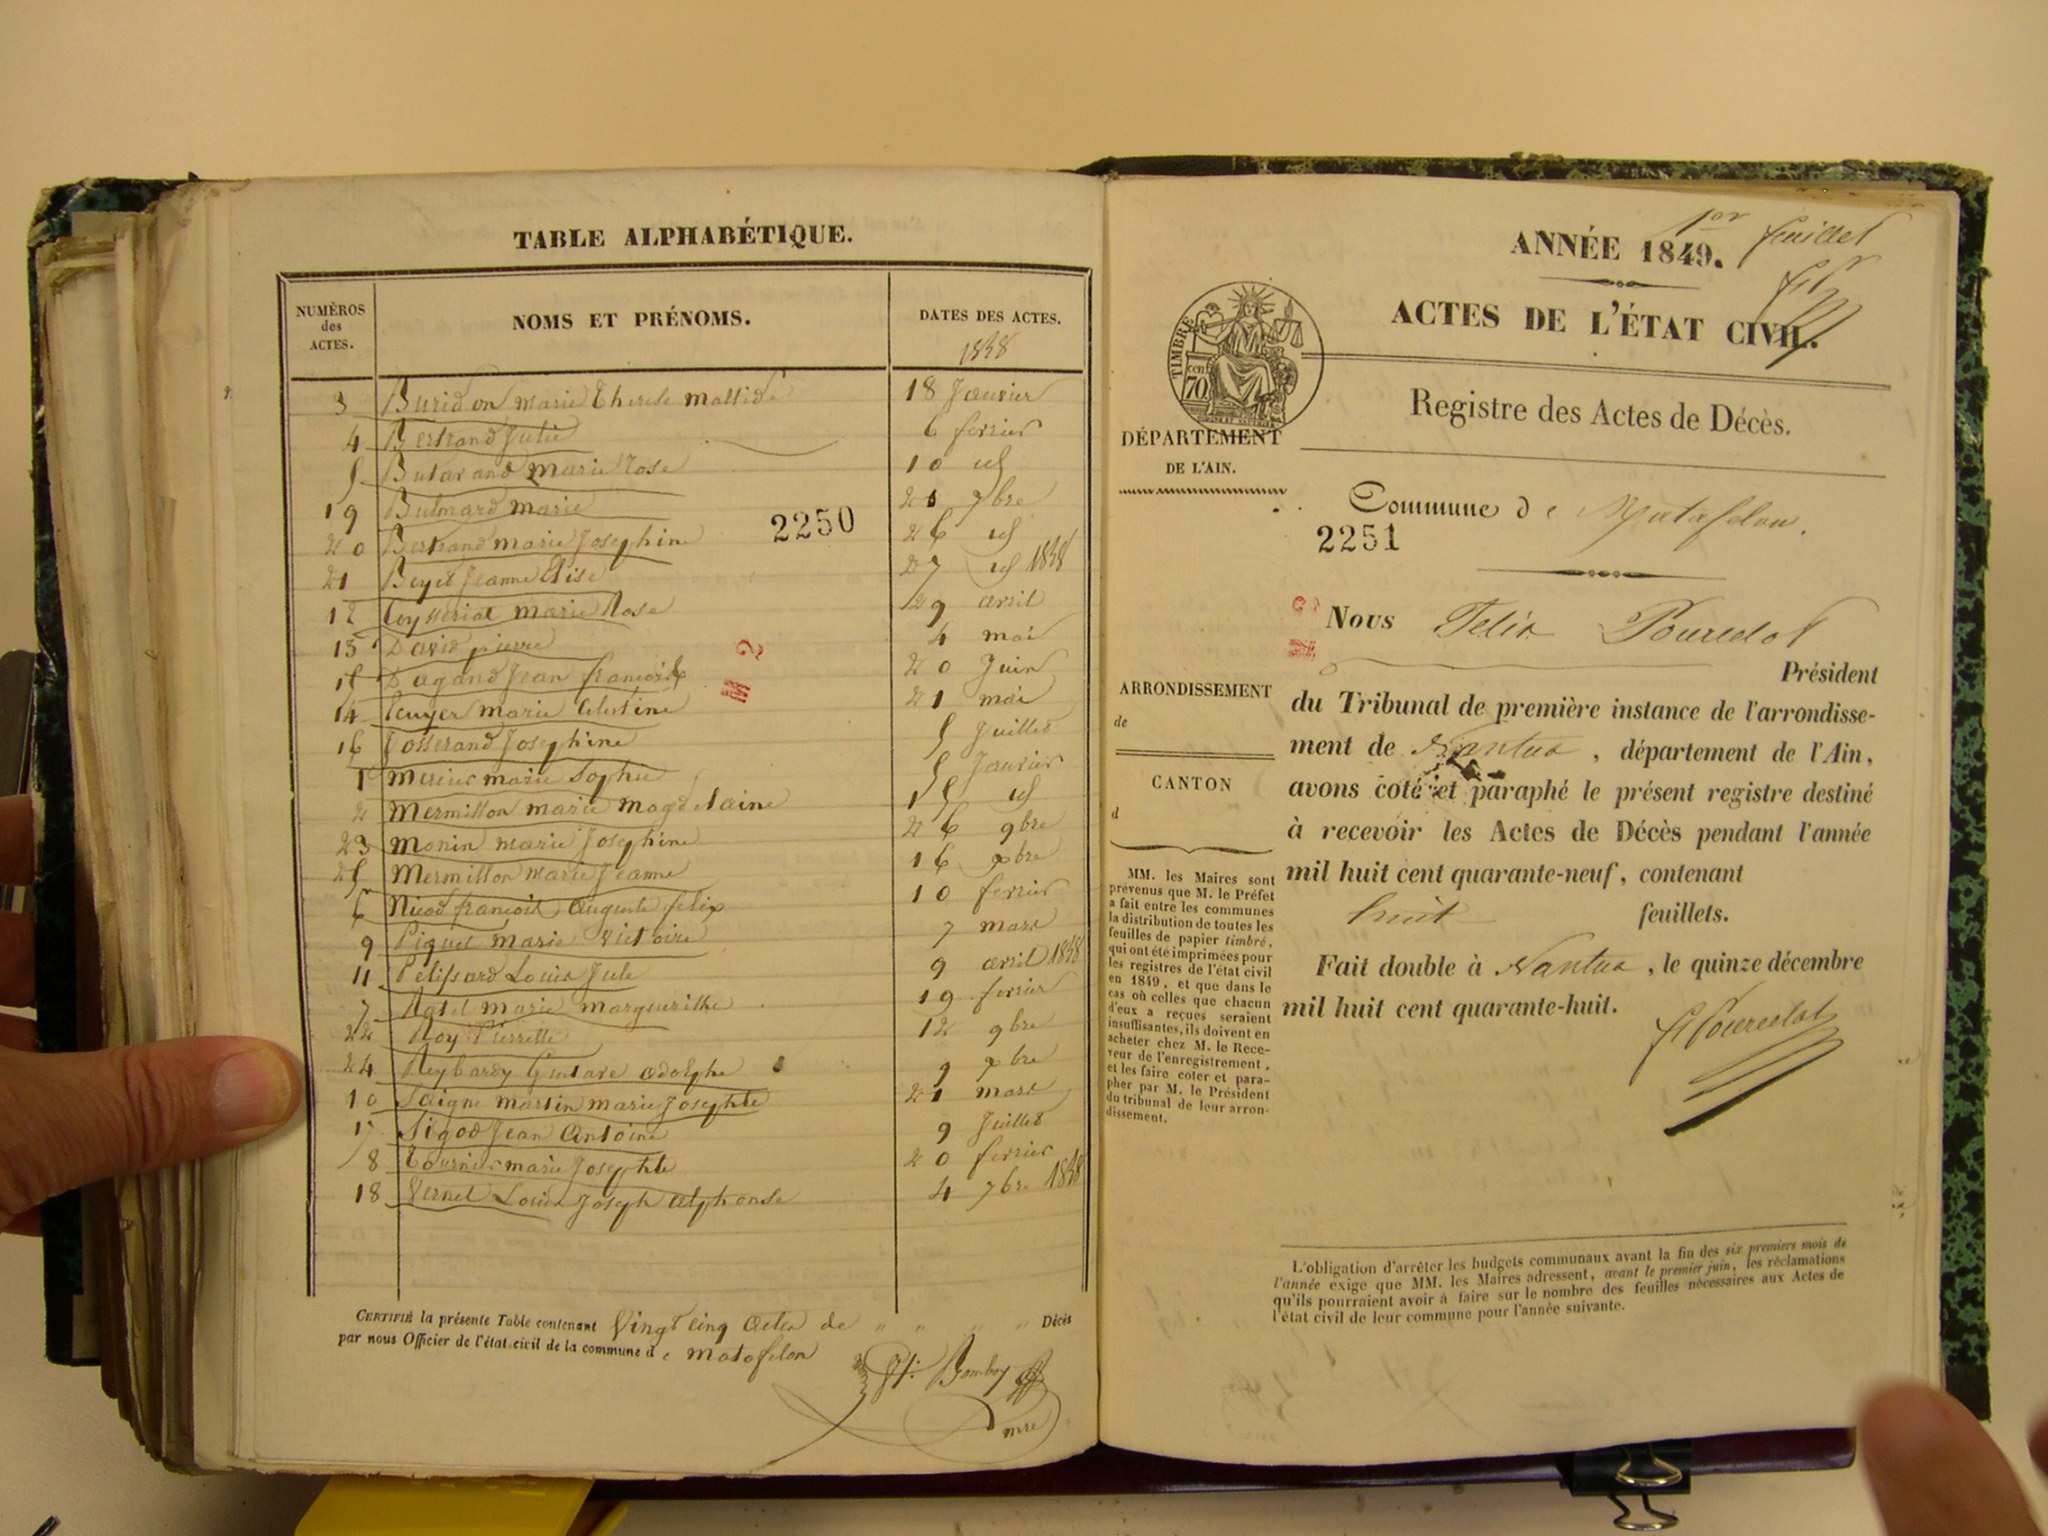 TABLE ALPHABÉTIQUE.
NUMÉROS des ACTES.
NOMS ET PRÉNOMS.
DATES DES ACTES.
1848
3 Buridon marie Therese 18 Janvier
4 Bertrand Julie 6 fevrier
5 marie Rose 10 id
19 marie 21 7bre
20 Bertrand marie Josephine 26 id
21 Beyet Jeanne Elise 27 id 1848
12 marie Rose 29 avril
13 David pierre 4 mai
15 Dagand Jean francois 20 Juin
14 marie Celestine 21 mai
16 Josserand Josephine 5 Juillet
1 Mercier marie Sophie 5 Janvier
2 Mermillon marie magdelaine 15 id
23 Monin marie Josephine 26 9bre
25 Mermillon marie Jeanne 16 xbre
6 Nicod francois auguste felix 10 fevrier
9 Piquet marie Victoire 7 mars
11 Pelissard Louis Jule 9 avril 1848
7 marie margueritte 19 fevrier
22 Roy Pierrette 12 9bre
24 Reybardy Gustave adolphe 9 xbre
10 Saigne martin marie Josephte 21 mars
17 Sigod Jean Antoine 9 Juillet
8 Tournier marie Josephte 20 fevrier
18 Vernet Louis Joseph alphonse 4 7bre 1848
2250
M 2
CERTIFIÉ la présente Table contenant Vingt cinq actes de " " " " Décès
par nous Officier de l'état civil de la commune de matafelon
Bomboy
mre
1er feuillet
ANNÉE 1849.
ACTES DE L'ÉTAT CIVIL.
TIMBRE
70 cent
Registre des Actes de Décès.
DÉPARTEMENT
DE L'AIN.
Commune de Matafelon.
2251
ARRONDISSEMENT
de
CANTON
d
MM. les Maires sont
prévenus que M. le Préfet
a fait entre les communes
la distribution de toutes les
feuilles de papier timbré,
qui ont été imprimées pour
les registres de l'état civil
en 1849, et que dans le
cas où celles que chacun
d'eux a reçues seraient
insuffisantes, ils doivent en
acheter chez M. le Rece-
veur de l'enregistrement,
et les faire coter et para-
pher par M. le Président
du tribunal de leur arron-
dissement.
Nous Felix Pouredol
Président
du Tribunal de première instance de l'arrondisse-
ment de Nantua, département de l'Ain,
avons coté et paraphé le présent registre destiné
à recevoir les Actes de Décès pendant l'année
mil huit cent quarante-neuf, contenant
huit feuillets.
Fait double à Nantua, le quinze décembre
mil huit cent quarante-huit.
f Pouredol
L'obligation d'arrêter les budgets communaux avant la fin des six premiers mois de
l'année exige que MM. les Maires adressent, avant le premier juin, les réclamations
qu'ils pourraient avoir à faire sur le nombre des feuilles nécessaires aux Actes de
l'état civil de leur commune pour l'année suivante.